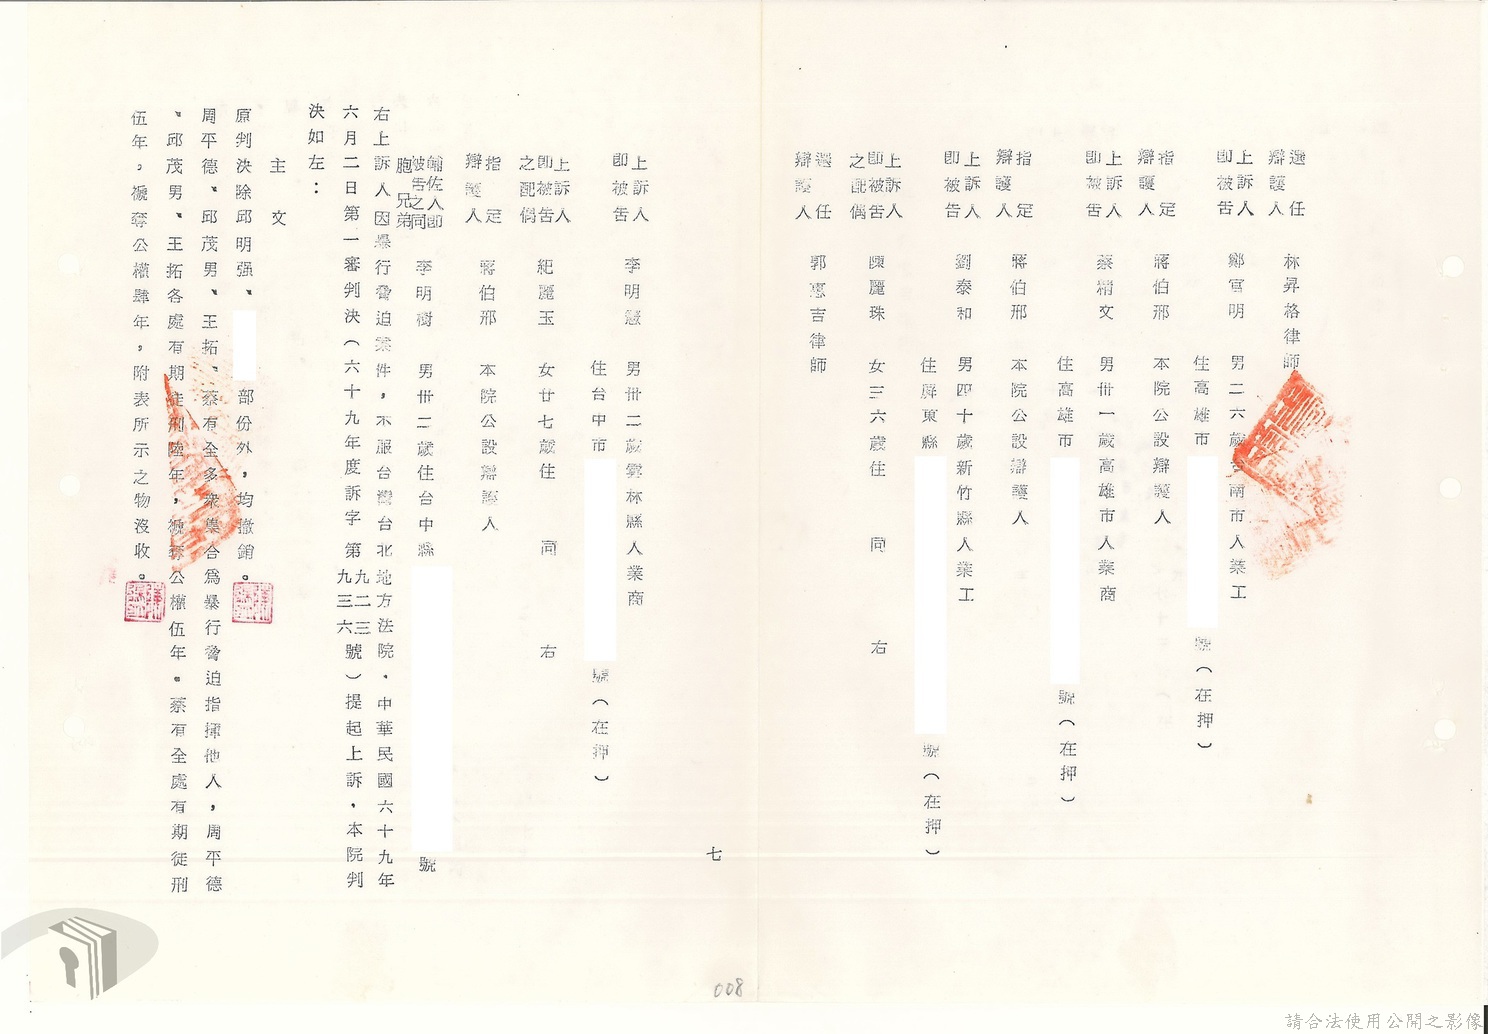 選任辯護人 林昇格律師
上訴人即被告 鄭官明 男二六歲台南市人業工
住高雄市 號(在押)
指定辯護人 蔣伯邢 本院公設辯護人
上訴人即被告 蔡精文 男卅一歲高雄市人業商
住高雄市 號(在押)
指定辯護人 蔣伯邢 本院公設辯護人
上訴人即被告 劉泰和 男四十歲新竹縣人業工
住屏東縣 號(在押)
上訴人即被告之配偶 陳麗珠 女三六歲住 同 右
選任辯護人 郭惠吉律師
七
上訴人即被告 李明憲 男卅二歲雲林縣人業商
住台中市 號(在押)
上訴人即被告之配偶 紀麗玉 女廿七歲住 同 右
指定辯護人 蔣伯邢 本院公設辯護人
輔佐人即被告之同胞兄弟 李明樹 男卅二歲住台中縣 號
右上訴人因暴行脅迫案件,不服台灣台北地方法院,中華民國六十九年
六月二日第一審判決(六十九年度訴字第九二三九三六號)提起上訴,本院判
決如左:
主文
原判決除邱明强、 部份外,均撤銷。
周平德、邱茂男、王拓、蔡有全多衆集合爲暴行脅迫指揮他人,周平德
、邱茂男、王拓各處有期徒刑陸年,褫奪公權伍年。蔡有全處有期徒刑
伍年,褫奪公權肆年,附表所示之物沒收。
008
請合法使用公開之影像